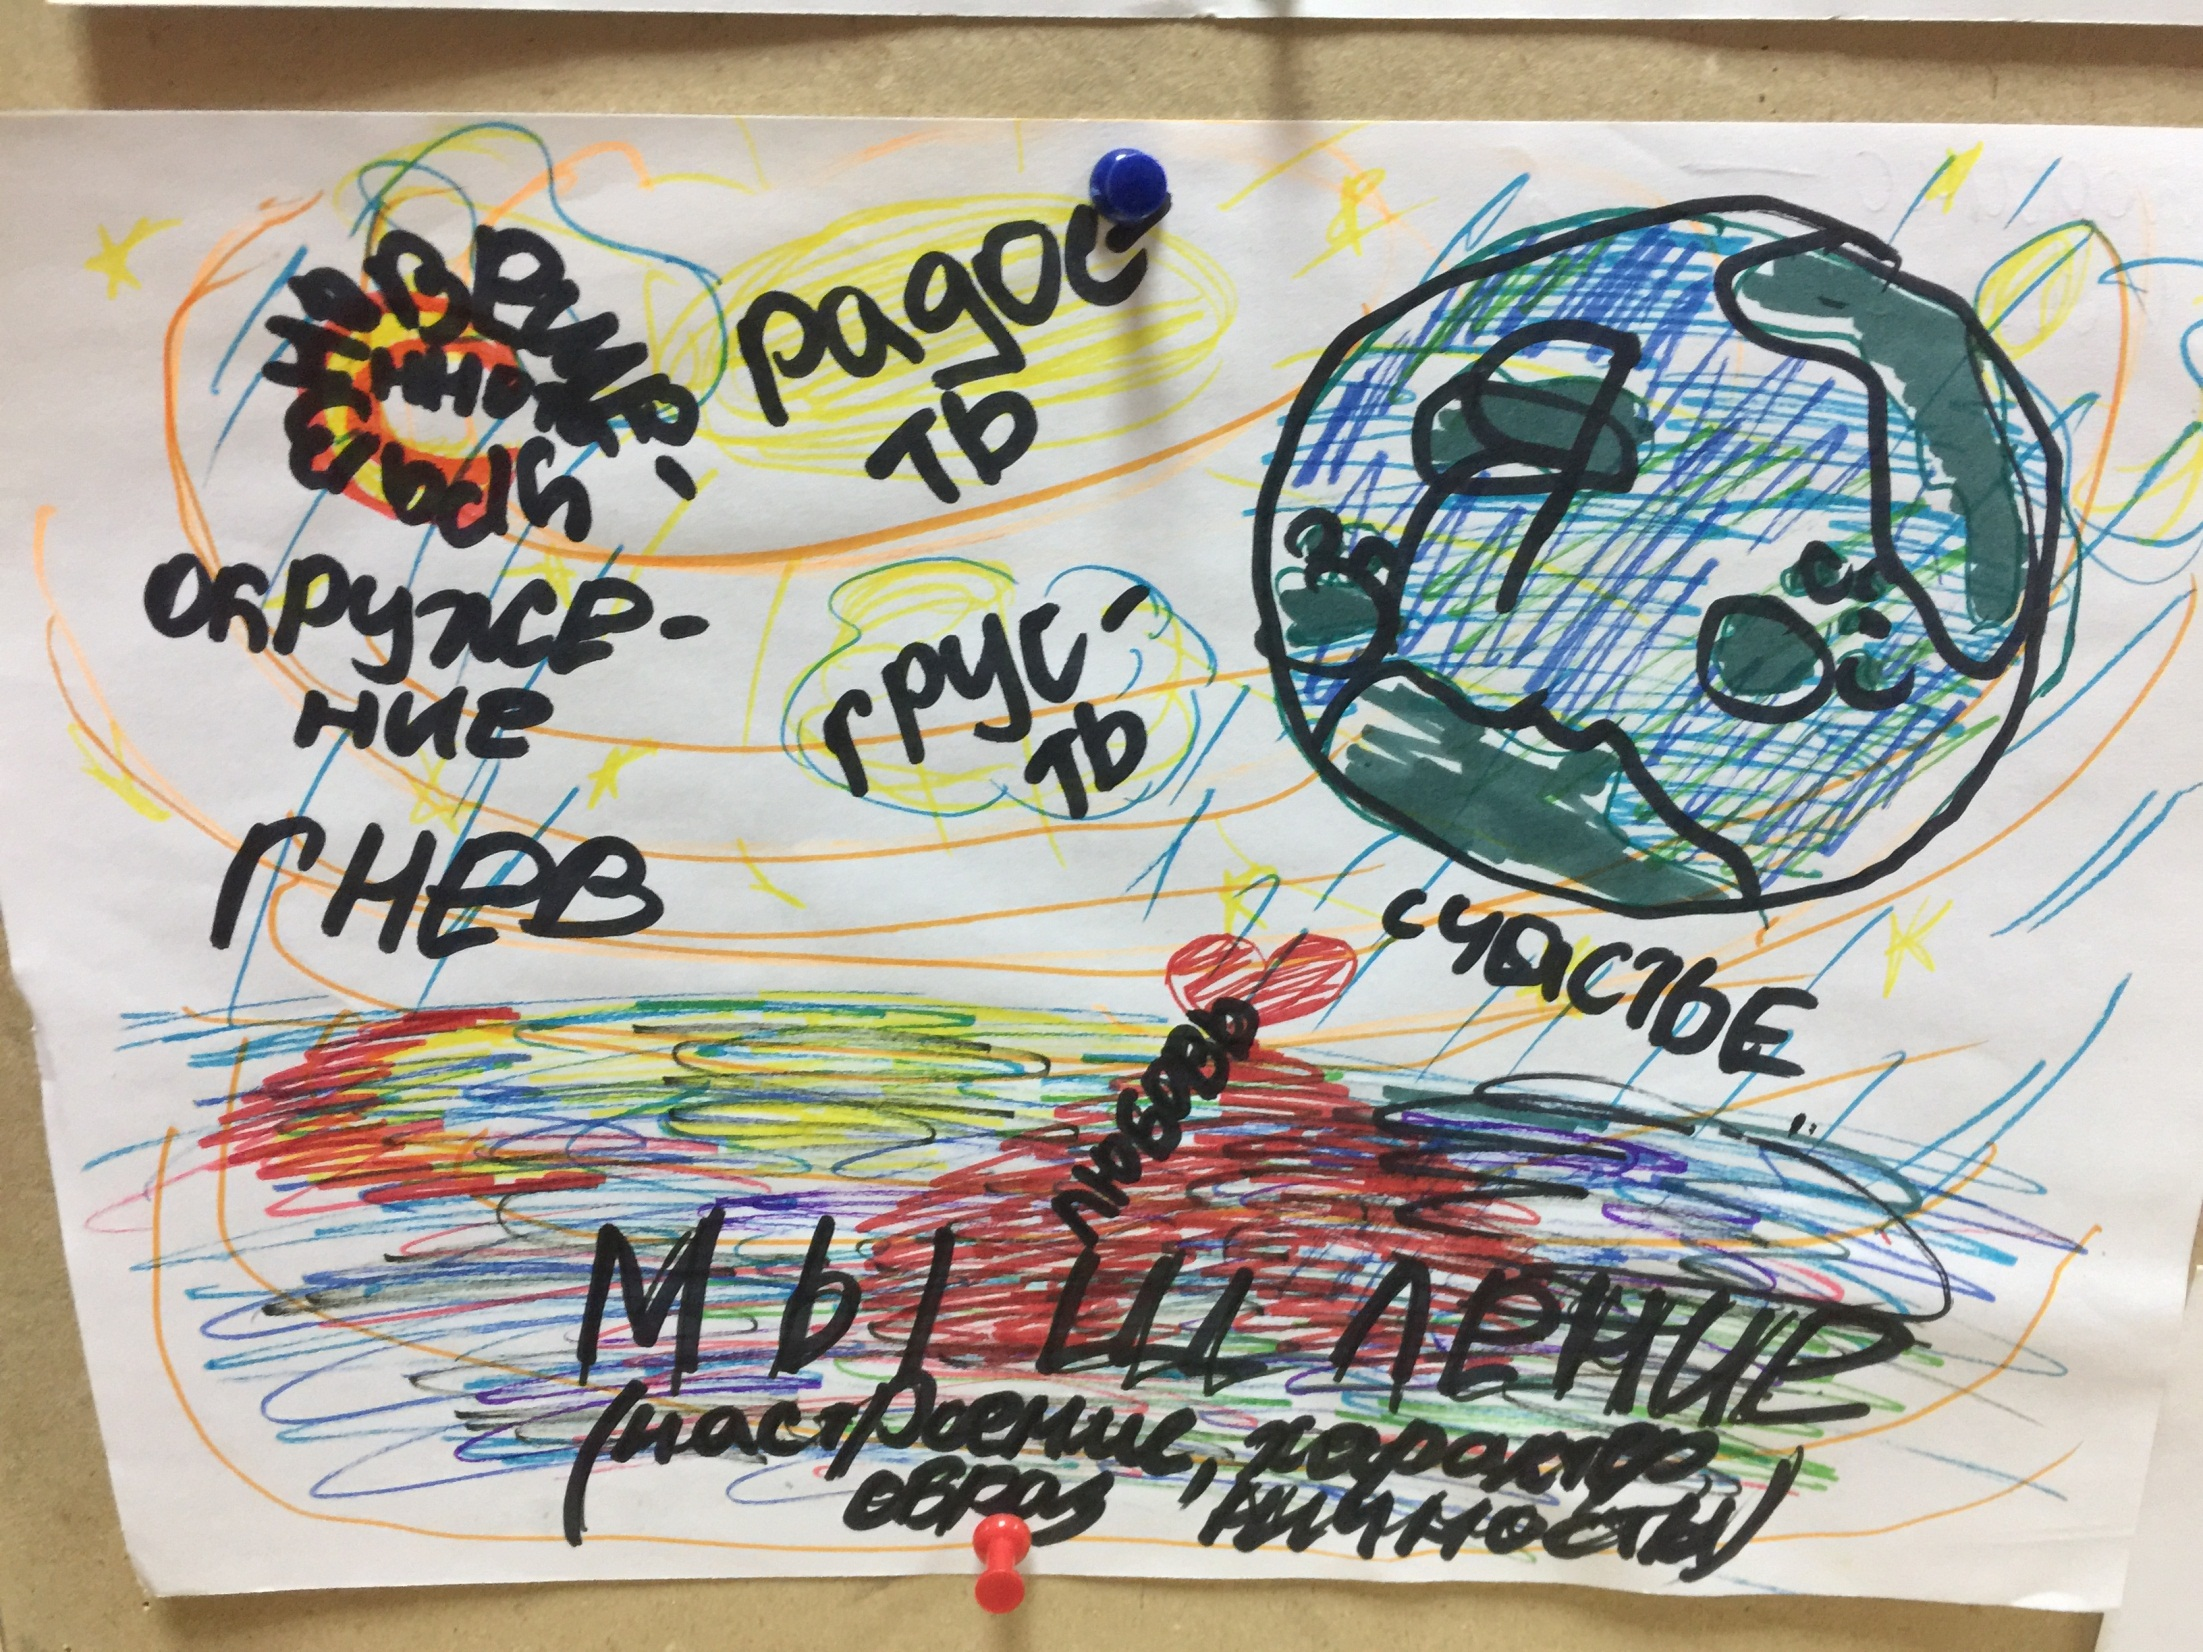 радос
ть
окруже-
ние
грус-
ть
гнев
счастье
любовь
мышление
(настроение, характер,
образ, личность)